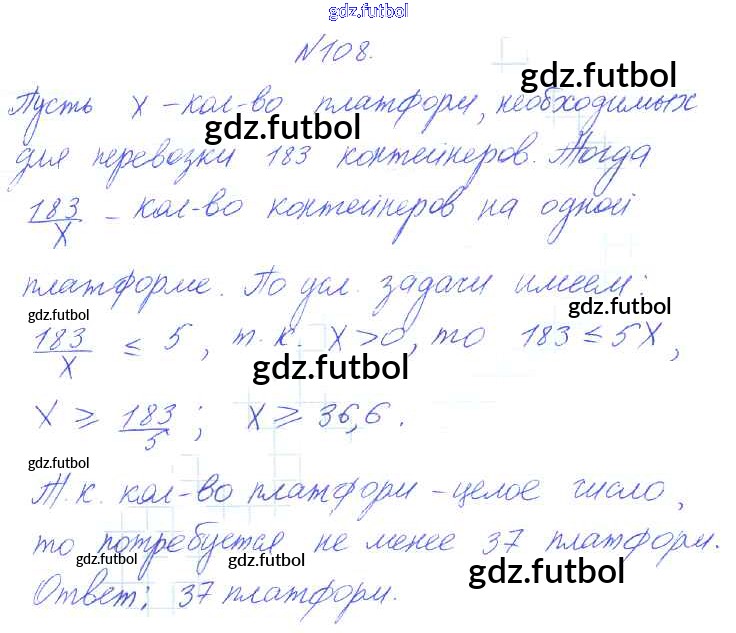 gdz.futbol
№108.
gdz.futbol
Пусть x - кол-во платформ, необходимых
gdz.futbol
для перевозки 183 контейнеров. Тогда
183/x - кол-во контейнеров на одной
платформе. По усл. задачи имеем:
gdz.futbol
gdz.futbol
183/x ≤ 5, т.к. x>0, то 183 ≤ 5x,
gdz.futbol
x ≥ 183/5; x ≥ 36,6.
gdz.futbol
Т.к. кол-во платформ - целое число,
то потребуется не менее 37 платформ.
gdz.futbol
gdz.futbol
gdz.futbol
Ответ: 37 платформ.